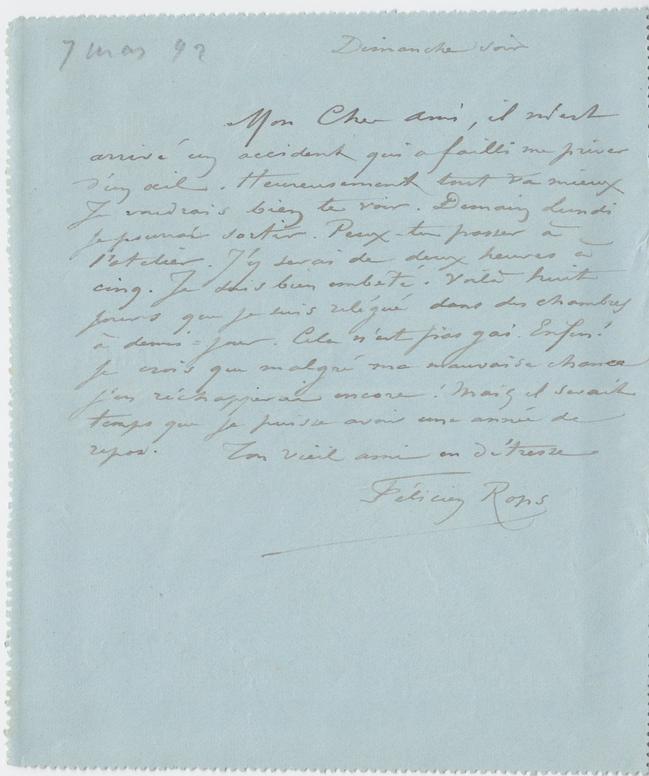 7 mars 92
Dimanche soir
Mon Cher ami, il m'est
arrivé un accident qui a failli me priver
d'un œil. Heureusement tout va mieux
Je voudrais bien te voir. Demain lundi
je pourrai sortir. Peux-tu passer à
l'atelier. J'y serai de deux heures à
cinq. Je suis bien embêté. Voilà huit
jours que je suis relégué dans des chambres
à demi-jour. Cela n'est pas gai. Enfin!
je crois que malgré ma mauvaise chance
j'en réchapperai encore! Mais il serait
temps que je puisse avoir une année de
repos. Ton vieil ami en détresse
Félicien Rops